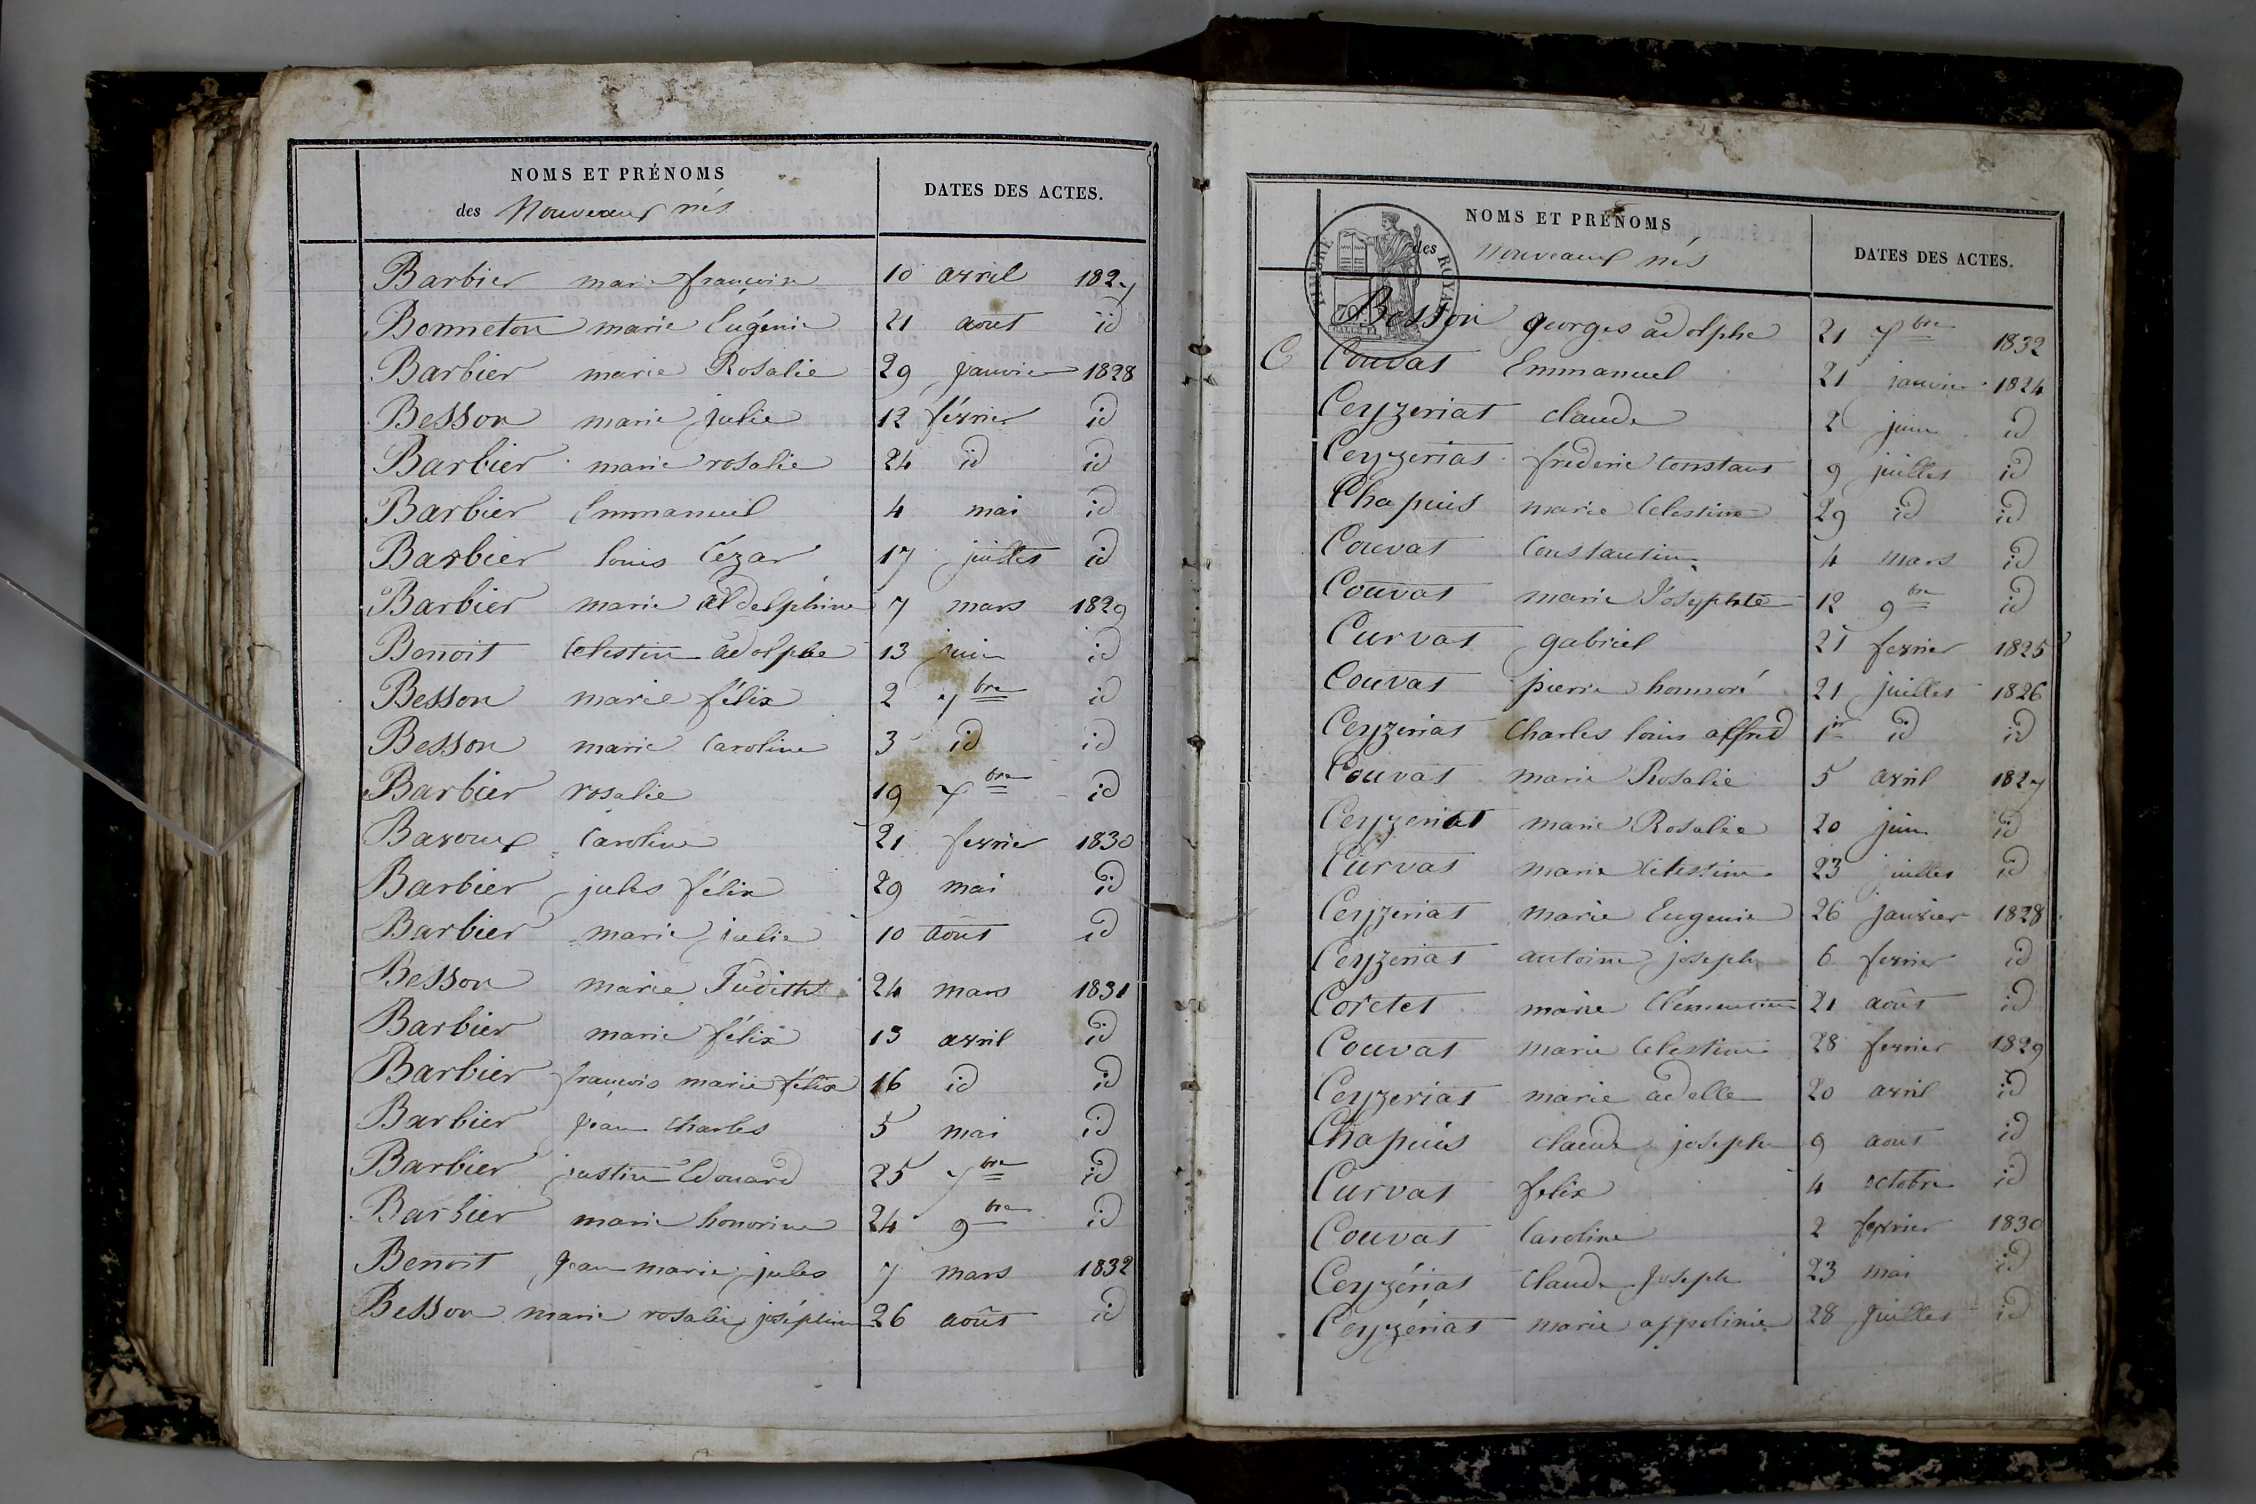 NOMS ET PRÉNOMS
des Nouveaux nés
DATES DES ACTES.
Barbier marie françoise 10 avril 1827
Bonneton marie Eugénie 21 aout id
Barbier marie Rosalie 29 janvier 1828
Besson marie julie 12 février id
Barbier marie rosalie 24 id id
Barbier Emmanuel 4 mai id
Barbier louis Cézar 17 juillet id
Barbier marie adelphine 7 mars 1829
Benoit Celestin adolphe 13 juin id
Besson marie félix 2 7bre id
Besson marie Caroline 3 id id
Barbier rosalie 19 7bre id
Baroux Caroline 21 fevrier 1830
Barbier jules félix 29 mai id
Barbier marie julie 10 août id
Besson marie Judith 24 mars 1831
Barbier marie félix 13 avril id
Barbier françois marie félix 16 id id
Barbier jean charles 5 mai id
Barbier justin Edouard 25 7bre id
Barbier marie honorine 24 9bre id
Benoit jean marie jules 7 mars 1832
Besson marie rosalie joséphine 26 août id
NOMS ET PRÉNOMS
des Nouveaux nés
DATES DES ACTES.
TIMBRE ROYAL
Besson georges adolphe 21 7bre 1832
C Couvat Emmanuel 21 janvier 1824
Ceyzeriat claude 2 juin id
Ceyzeriat frederic Constant 9 juillet id
Chapuis marie Celestine 29 id id
Couvat Constantin 4 mars id
Couvat marie Josephte 12 9bre id
Curvat gabriel 21 fevrier 1825
Couvat pierre honnoré 21 juillet 1826
Ceyzeriat Charles louis alfred 1er id id
Couvat marie Rosalie 5 avril 1827
Ceyzeriat marie Rosalie 20 juin id
Curvat marie Celestine 23 juillet id
Ceyzeriat marie Eugenie 26 janvier 1828
Ceyzeriat antoine joseph 6 fevrier id
Coretet marie Clémentine 21 août id
Couvat marie Celestine 28 fevrier 1829
Ceyzeriat marie adelle 20 avril id
Chapuis claude joseph 9 aout id
Curvat felix 4 octobre id
Couvat Caroline 2 fevrier 1830
Ceyzériat Claude Joseph 23 mai id
Ceyzériat marie appolinie 28 juillet id